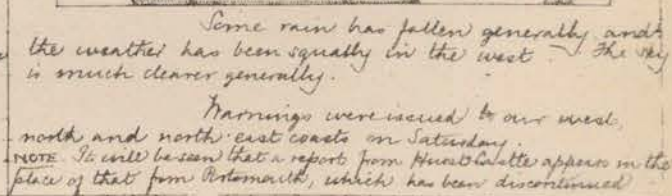 Some rain has fallen generally and
the weather has been squally in the west. The sky
is much clearer generally.
Warnings were issued to our west,
north and north-east coasts on Saturday.
NOTE. It will be seen that a report from Hurst Castle appears in the
place of that from Portsmouth, which has been discontinued